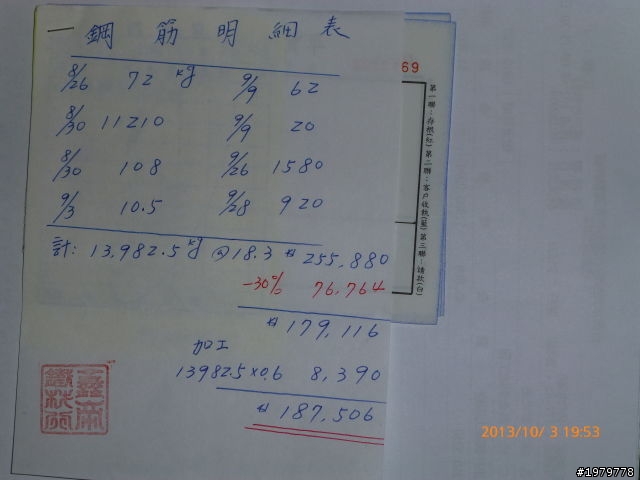 一 鋼筋明細表
69
8/26 72 kg 9/9 62
8/30 11210 9/9 20
8/30 108 9/26 1580
9/3 10.5 9/28 920
計: 13,982.5 kg @18.3 # 255,880
-30% 76,764
# 179,116
加工
13982.5×0.6 8,390
# 187,506
第一聯:存根(紅)第二聯:客户收執(藍)第三聯:請款(白)
2013/10/ 3 19:53
#1979778